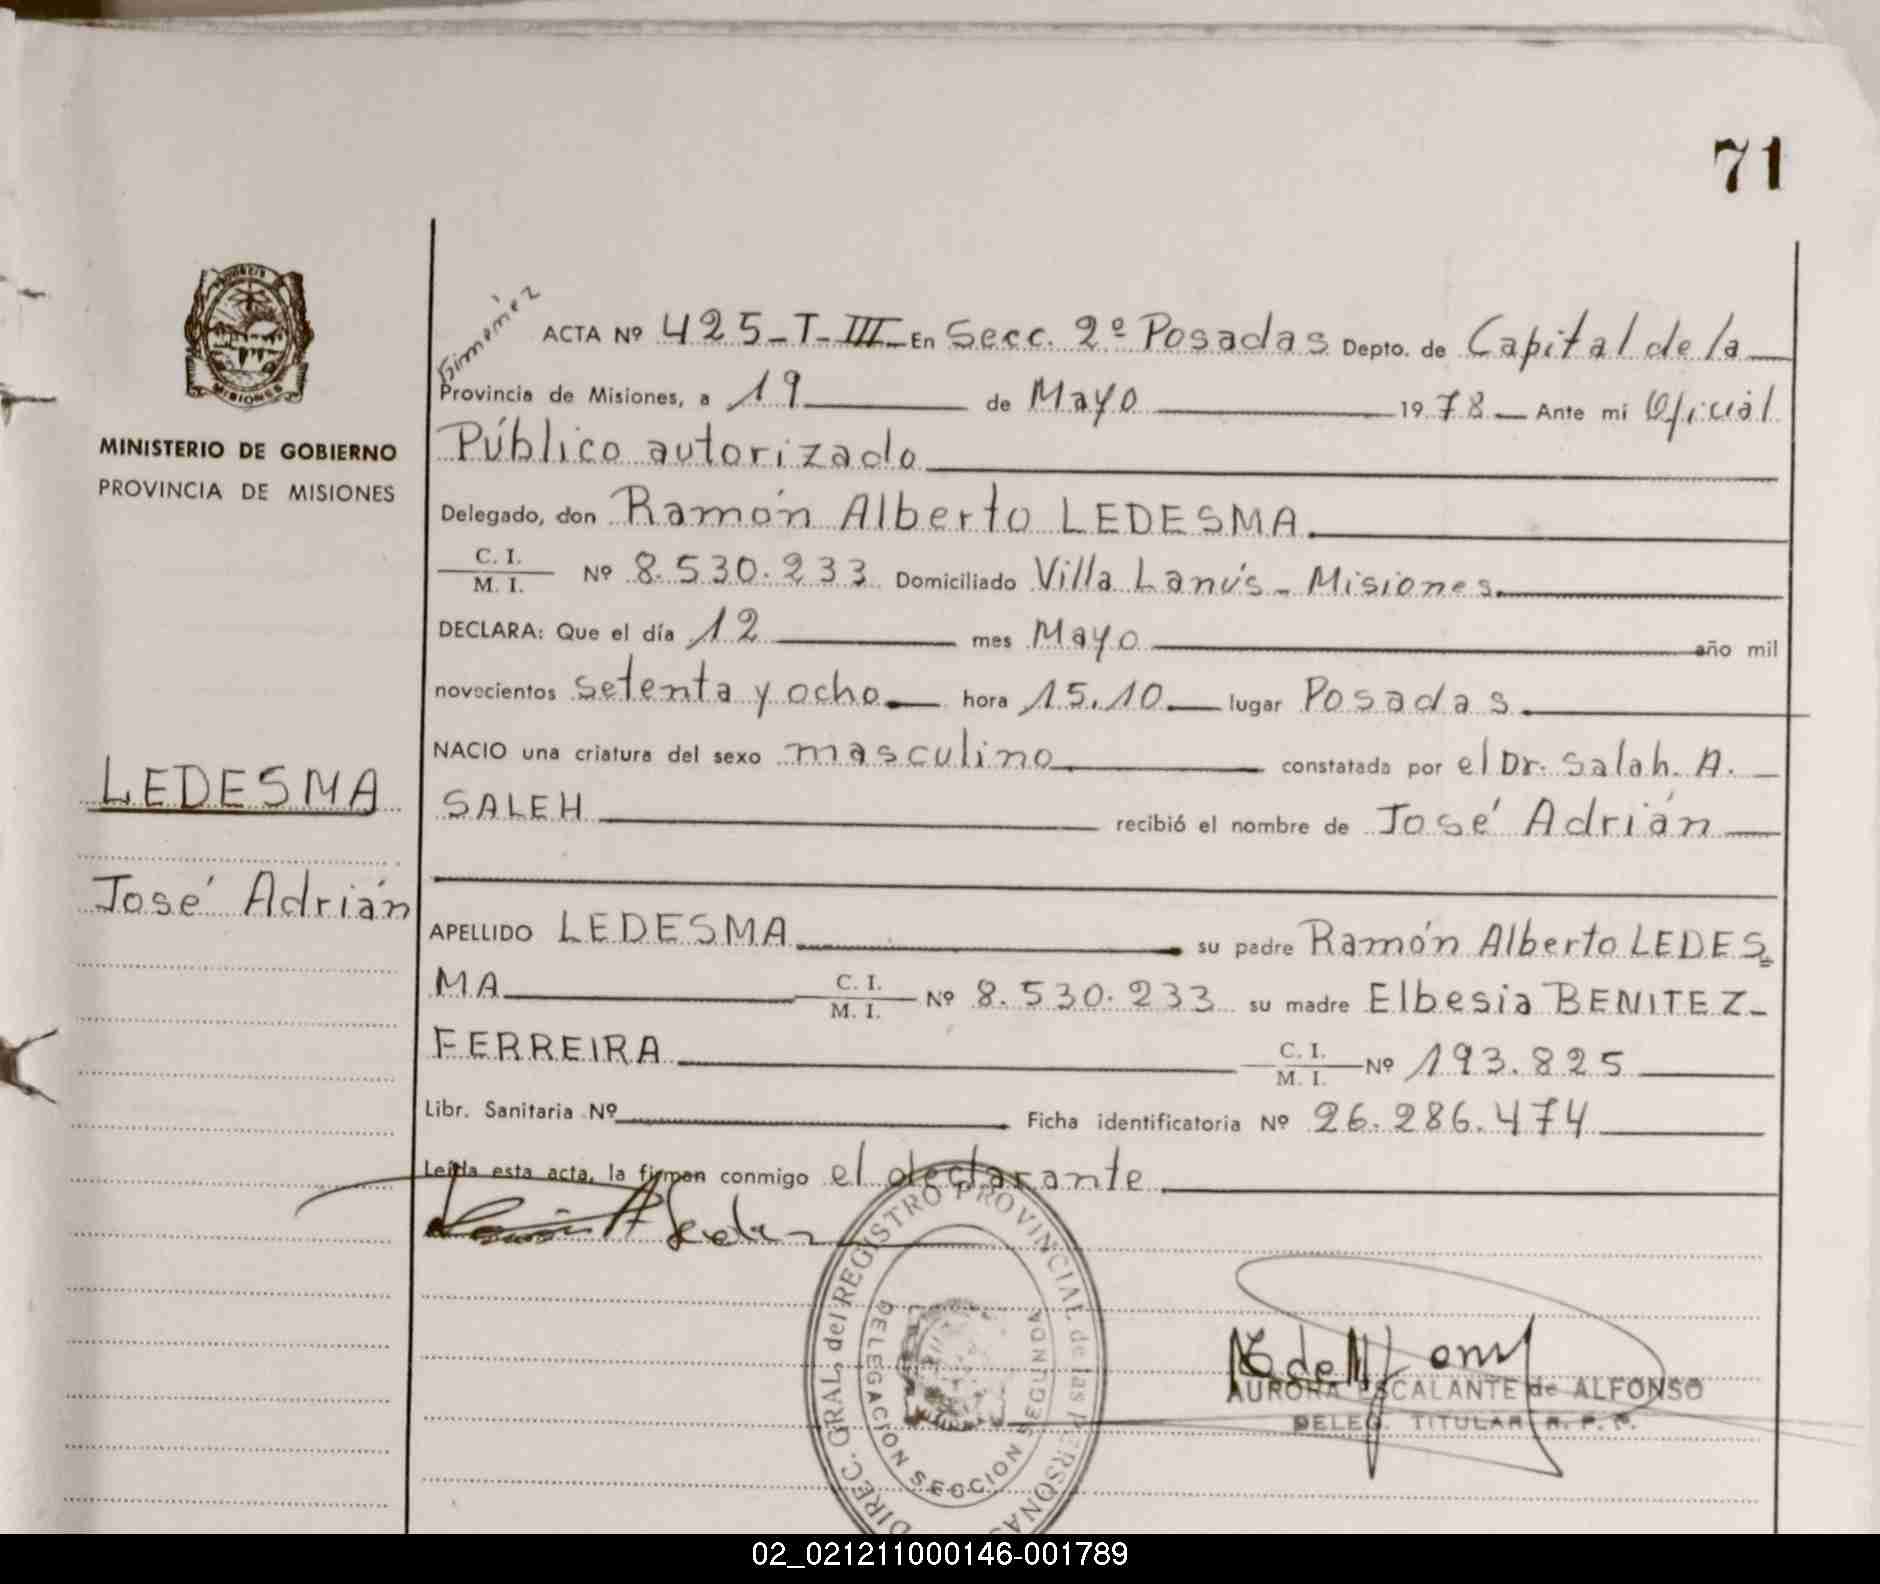 71
Gimenez
ACTA Nº 425-T-III- En Secc. 2º Posadas Depto. de Capital de la
Provincia de Misiones, a 19 de Mayo 1978 Ante mi Oficial
Público autorizado
Delegado, don Ramón Alberto LEDESMA
C. I.
M. I. Nº 8.530.233 Domiciliado Villa Lanús - Misiones
DECLARA: Que el día 12 mes Mayo año mil
novecientos setenta y ocho hora 15.10 lugar Posadas
NACIO una criatura del sexo masculino constatada por el Dr. Salah. A.
SALEH recibió el nombre de José Adrián
APELLIDO LEDESMA su padre Ramón Alberto LEDES=
MA C. I. M. I. Nº 8.530.233 su madre Elbesia BENITEZ-
FERREIRA C. I. M. I. Nº 193.825
Libr. Sanitaria Nº Ficha identificatoria Nº 26.286.474
Leída esta acta, la firman conmigo el declarante
MISIONES
MINISTERIO DE GOBIERNO
PROVINCIA DE MISIONES
LEDESMA
José Adrián
DIREC. GRAL. del REGISTRO PROVINCIAL de las PERSONAS
DELEGACION SECCION SEGUNDA
AURORA ESCALANTE de ALFONSO
DELEG. TITULAR R. P. P.
02_021211000146-001789